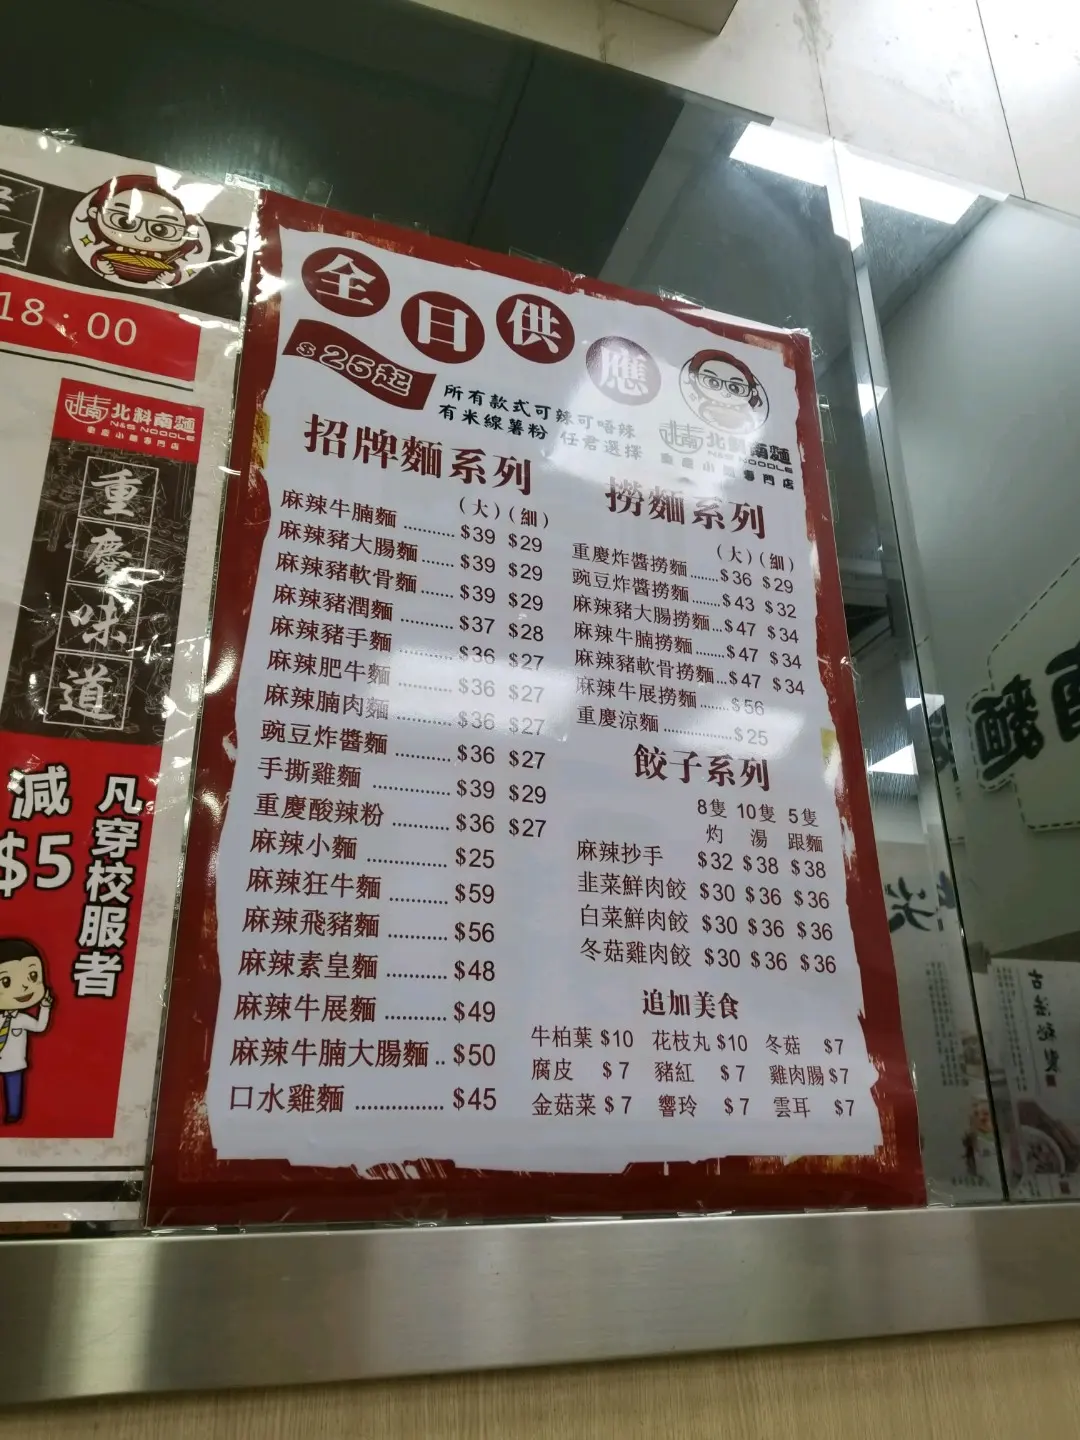 18:00
北斜南麵
N&S NOODLE
重慶小麵專門店
重慶味道
減
$5
凡穿校服者
全日供應
$25起
所有款式可辣可唔辣
有米線薯粉 任君選擇
北斜南麵
N&S NOODLE
重慶小麵專門店
招牌麵系列
(大)(細)
麻辣牛腩麵 .......... $39 $29
麻辣豬大腸麵 ....... $39 $29
麻辣豬軟骨麵 ....... $39 $29
麻辣豬潤麵 .......... $37 $28
麻辣豬手麵 .......... $36 $27
麻辣肥牛麵 .......... $36 $27
麻辣腩肉麵 .......... $36 $27
豌豆炸醬麵 .......... $36 $27
手撕雞麵 .............. $39 $29
重慶酸辣粉 .......... $36 $27
麻辣小麵 .............. $25
麻辣狂牛麵 .......... $59
麻辣飛豬麵 .......... $56
麻辣素皇麵 .......... $48
麻辣牛展麵 .......... $49
麻辣牛腩大腸麵 .. $50
口水雞麵 ............... $45
撈麵系列
(大)(細)
重慶炸醬撈麵 ....... $36 $29
豌豆炸醬撈麵 ....... $43 $32
麻辣豬大腸撈麵 ... $47 $34
麻辣牛腩撈麵 ....... $47 $34
麻辣豬軟骨撈麵 ... $47 $34
麻辣牛展撈麵 ........ $56
重慶涼麵 ................. $25
餃子系列
8隻 10隻 5隻
灼 湯 跟麵
麻辣抄手 $32 $38 $38
韭菜鮮肉餃 $30 $36 $36
白菜鮮肉餃 $30 $36 $36
冬菇雞肉餃 $30 $36 $36
追加美食
牛柏葉 $10 花枝丸 $10 冬菇 $7
腐皮 $7 豬紅 $7 雞肉腸 $7
金菇菜 $7 響玲 $7 雲耳 $7